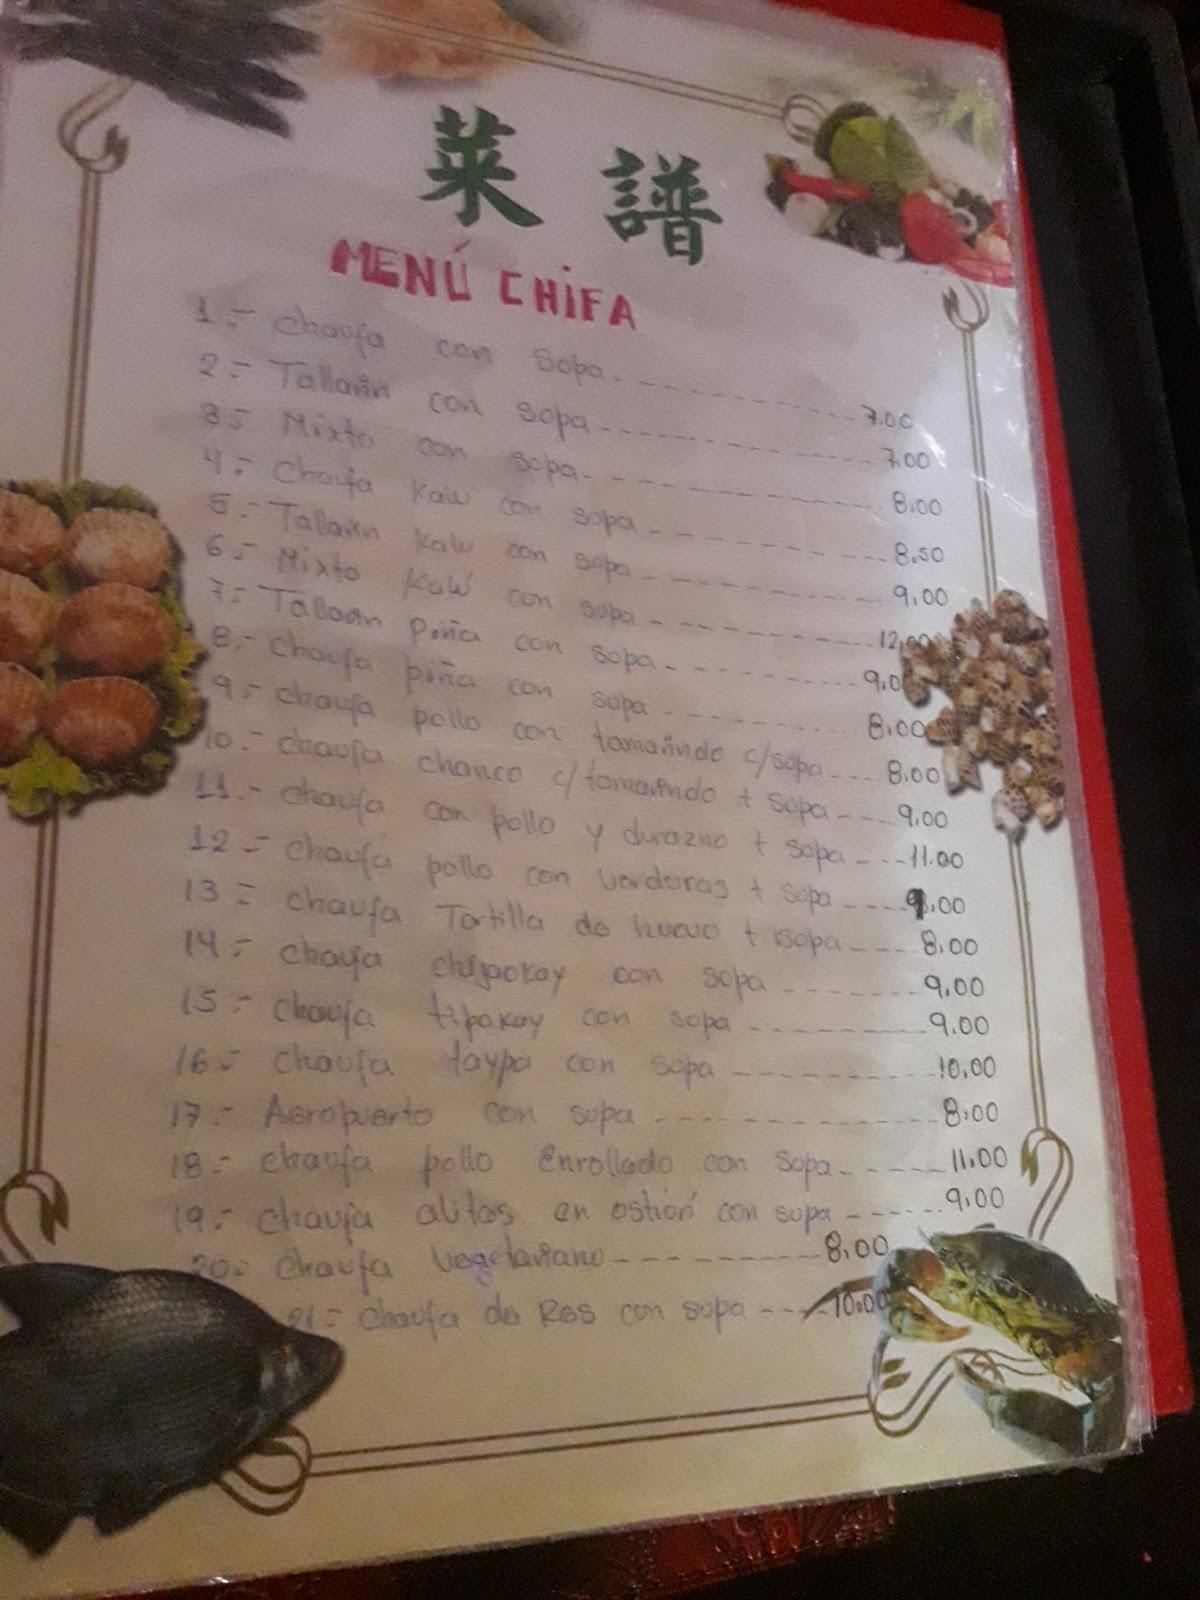 菜 譜
MENÚ CHIFA
1.- Chaufa con sopa 7.00
2.- Tallarin con sopa 7.00
3.- Mixto con sopa 8.00
4.- Chaufa Kaw con sopa 8.50
5.- Tallarin Kaw con sopa 9.00
6.- Mixto Kaw con sopa 12.00
7.- Tallarin piña con sopa 9.00
8.- Chaufa piña con sopa 8.00
9.- Chaufa pollo con tamarindo c/sopa 8.00
10.- Chaufa chanco c/tamarindo + sopa 9.00
11.- Chaufa con pollo y durazno + sopa 11.00
12.- Chaufa pollo con verduras + sopa 9.00
13.- Chaufa Tortilla de huevo + sopa 8.00
14.- Chaufa chijaokay con sopa 9.00
15.- Chaufa tipakay con sopa 9.00
16.- Chaufa taypa con sopa 10.00
17.- Aeropuerto con sopa 8.00
18.- Chaufa pollo Enrollado con sopa 11.00
19.- Chaufa alitas en ostión con sopa 9.00
20.- Chaufa vegetariano 8.00
21.- Chaufa de Res con sopa 10.00